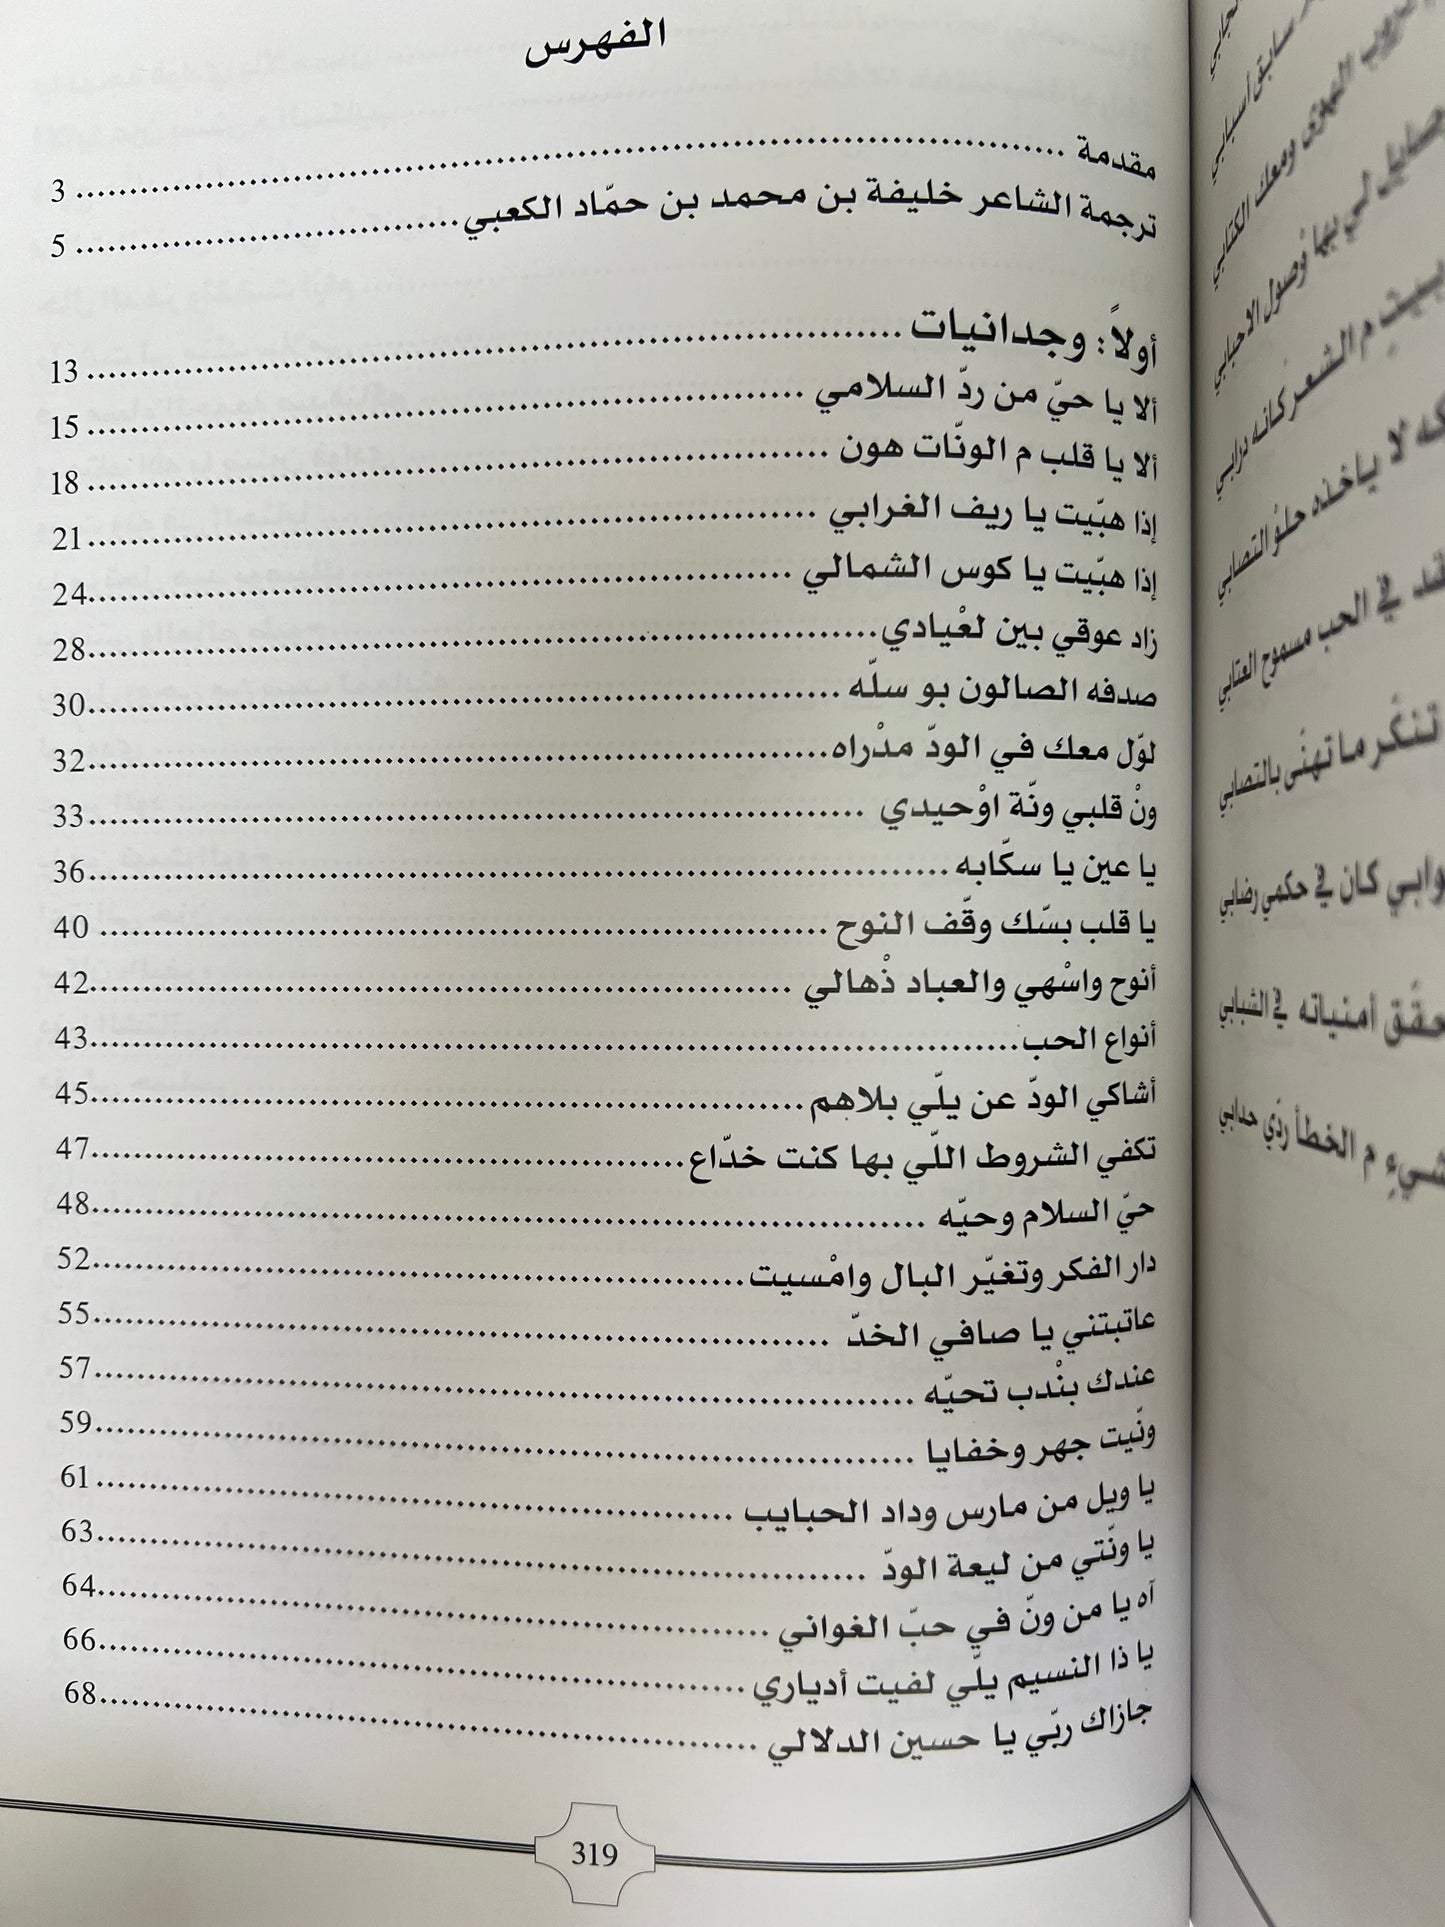 الفهرس
مقدمة ........ 3
ترجمة الشاعر خليفة بن محمد بن حمّاد الكعبي ........ 5
أولاً: وجدانيات ........ 13
ألا يا حيّ من ردّ السلامي ........ 15
ألا يا قلب م الونّات هون ........ 18
إذا هبّيت يا ريف الغرابي ........ 21
إذا هبّيت يا كوس الشمالي ........ 24
زاد عوقي بين لعْيادي ........ 28
صدفه الصالون بو سلّه ........ 30
لوّل معك في الودّ مدْراه ........ 32
ونْ قلبي ونّة اوْحيدي ........ 33
يا عين يا سكّابه ........ 36
يا قلب بسّك وقّف النوح ........ 40
أنوح واسْهي والعباد ذْهالي ........ 42
أنواع الحب ........ 43
أشاكي الودّ عن يلّي بلاهم ........ 45
تكفي الشروط اللّي بها كنت خدّاع ........ 47
حيّ السلام وحيّه ........ 48
دار الفكر وتغيّر البال وامْسيت ........ 52
عاتبتني يا صافي الخدّ ........ 55
عندك بنْدب تحيّه ........ 57
ونّيت جهر وخفايا ........ 59
يا ويل من مارس وداد الحبايب ........ 61
يا ونّتي من ليعة الودّ ........ 63
آه يا من ونّ في حبّ الغواني ........ 64
يا ذا النسيم يلّي لفيت أدياري ........ 66
جازاك ربّي يا حسين الدلالي ........ 68
319
سابق اسبابي
ومعك الكتابي
لي بها وصول الاحبابي
م الشعر كانه درابي
لا ياخذه حلو التصابي
في الحب مسموح العتابي
تنكر ما تهنّى بالتصابي
كان في حكمي رضابي
أمنياته في الشبابي
م الخطأ ردّي حدابي